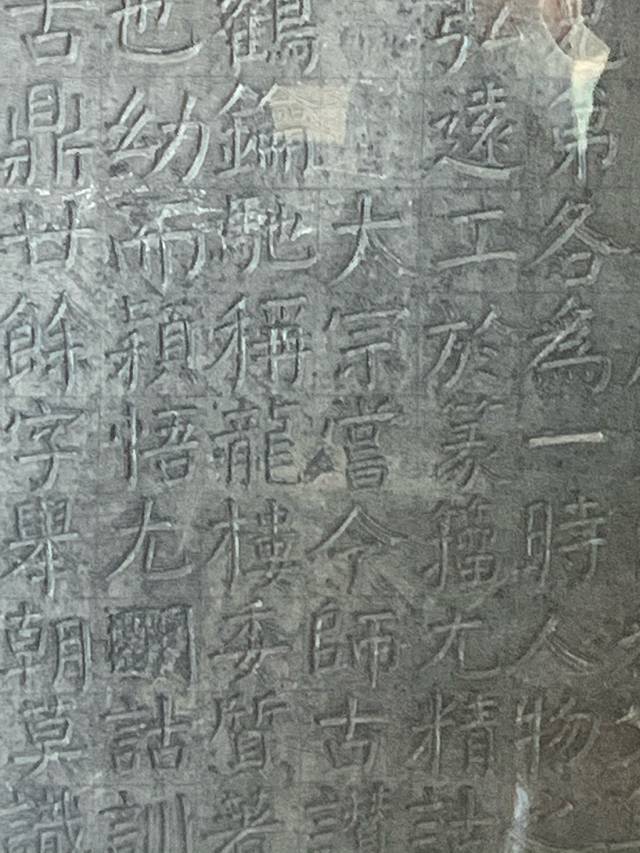 第各為一時人物之
弘遠工於篆籀尤精詁
太宗嘗令師古讚
鶴鑰馳稱龍樓委質著
也幼而穎悟尤詁訓
古鼎廿餘字舉朝莫識